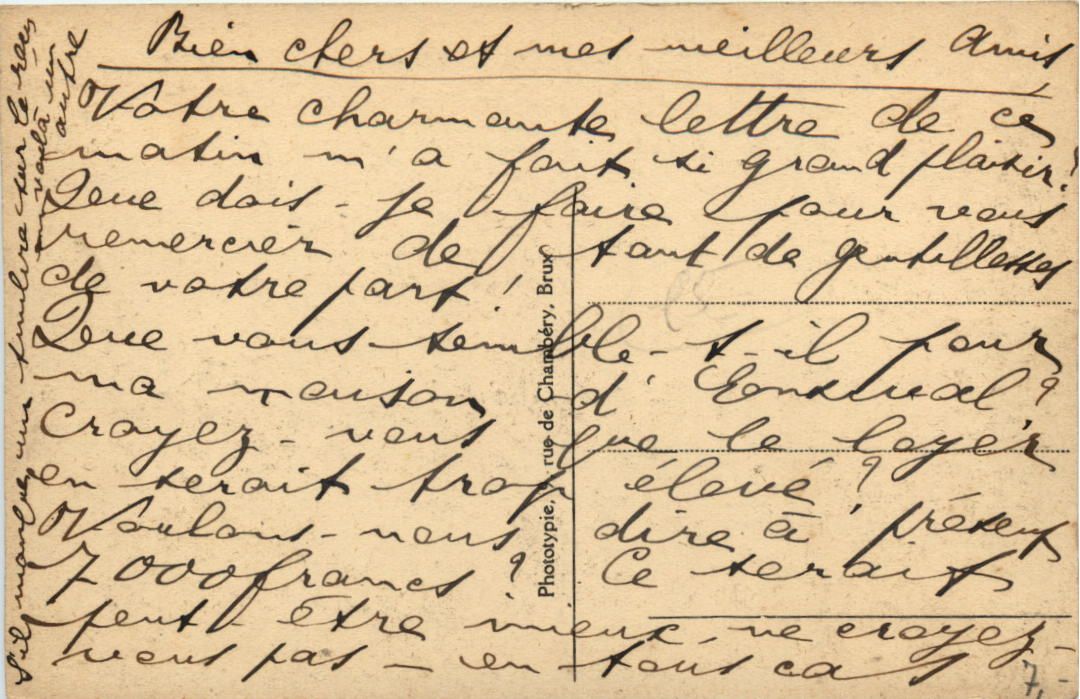 Bien chers et mes meilleurs Amis
Votre charmante lettre de ce
matin m'a fait si grand plaisir!
Que dois-je faire pour vous
remercier de tant de gentillesses
de votre part!
Que vous semble-t-il pour
ma maison d'
Croyez-vous que le loyer
en serait trop élevé?
Voulons-nous dire à présent
7000 francs? Ce serait
peut-être mieux, ne croyez-
vous pas - en tous cas
S'il manque un timbre sur le
en voilà un
autre
Phototypie, rue de Chambéry, Brux
7-